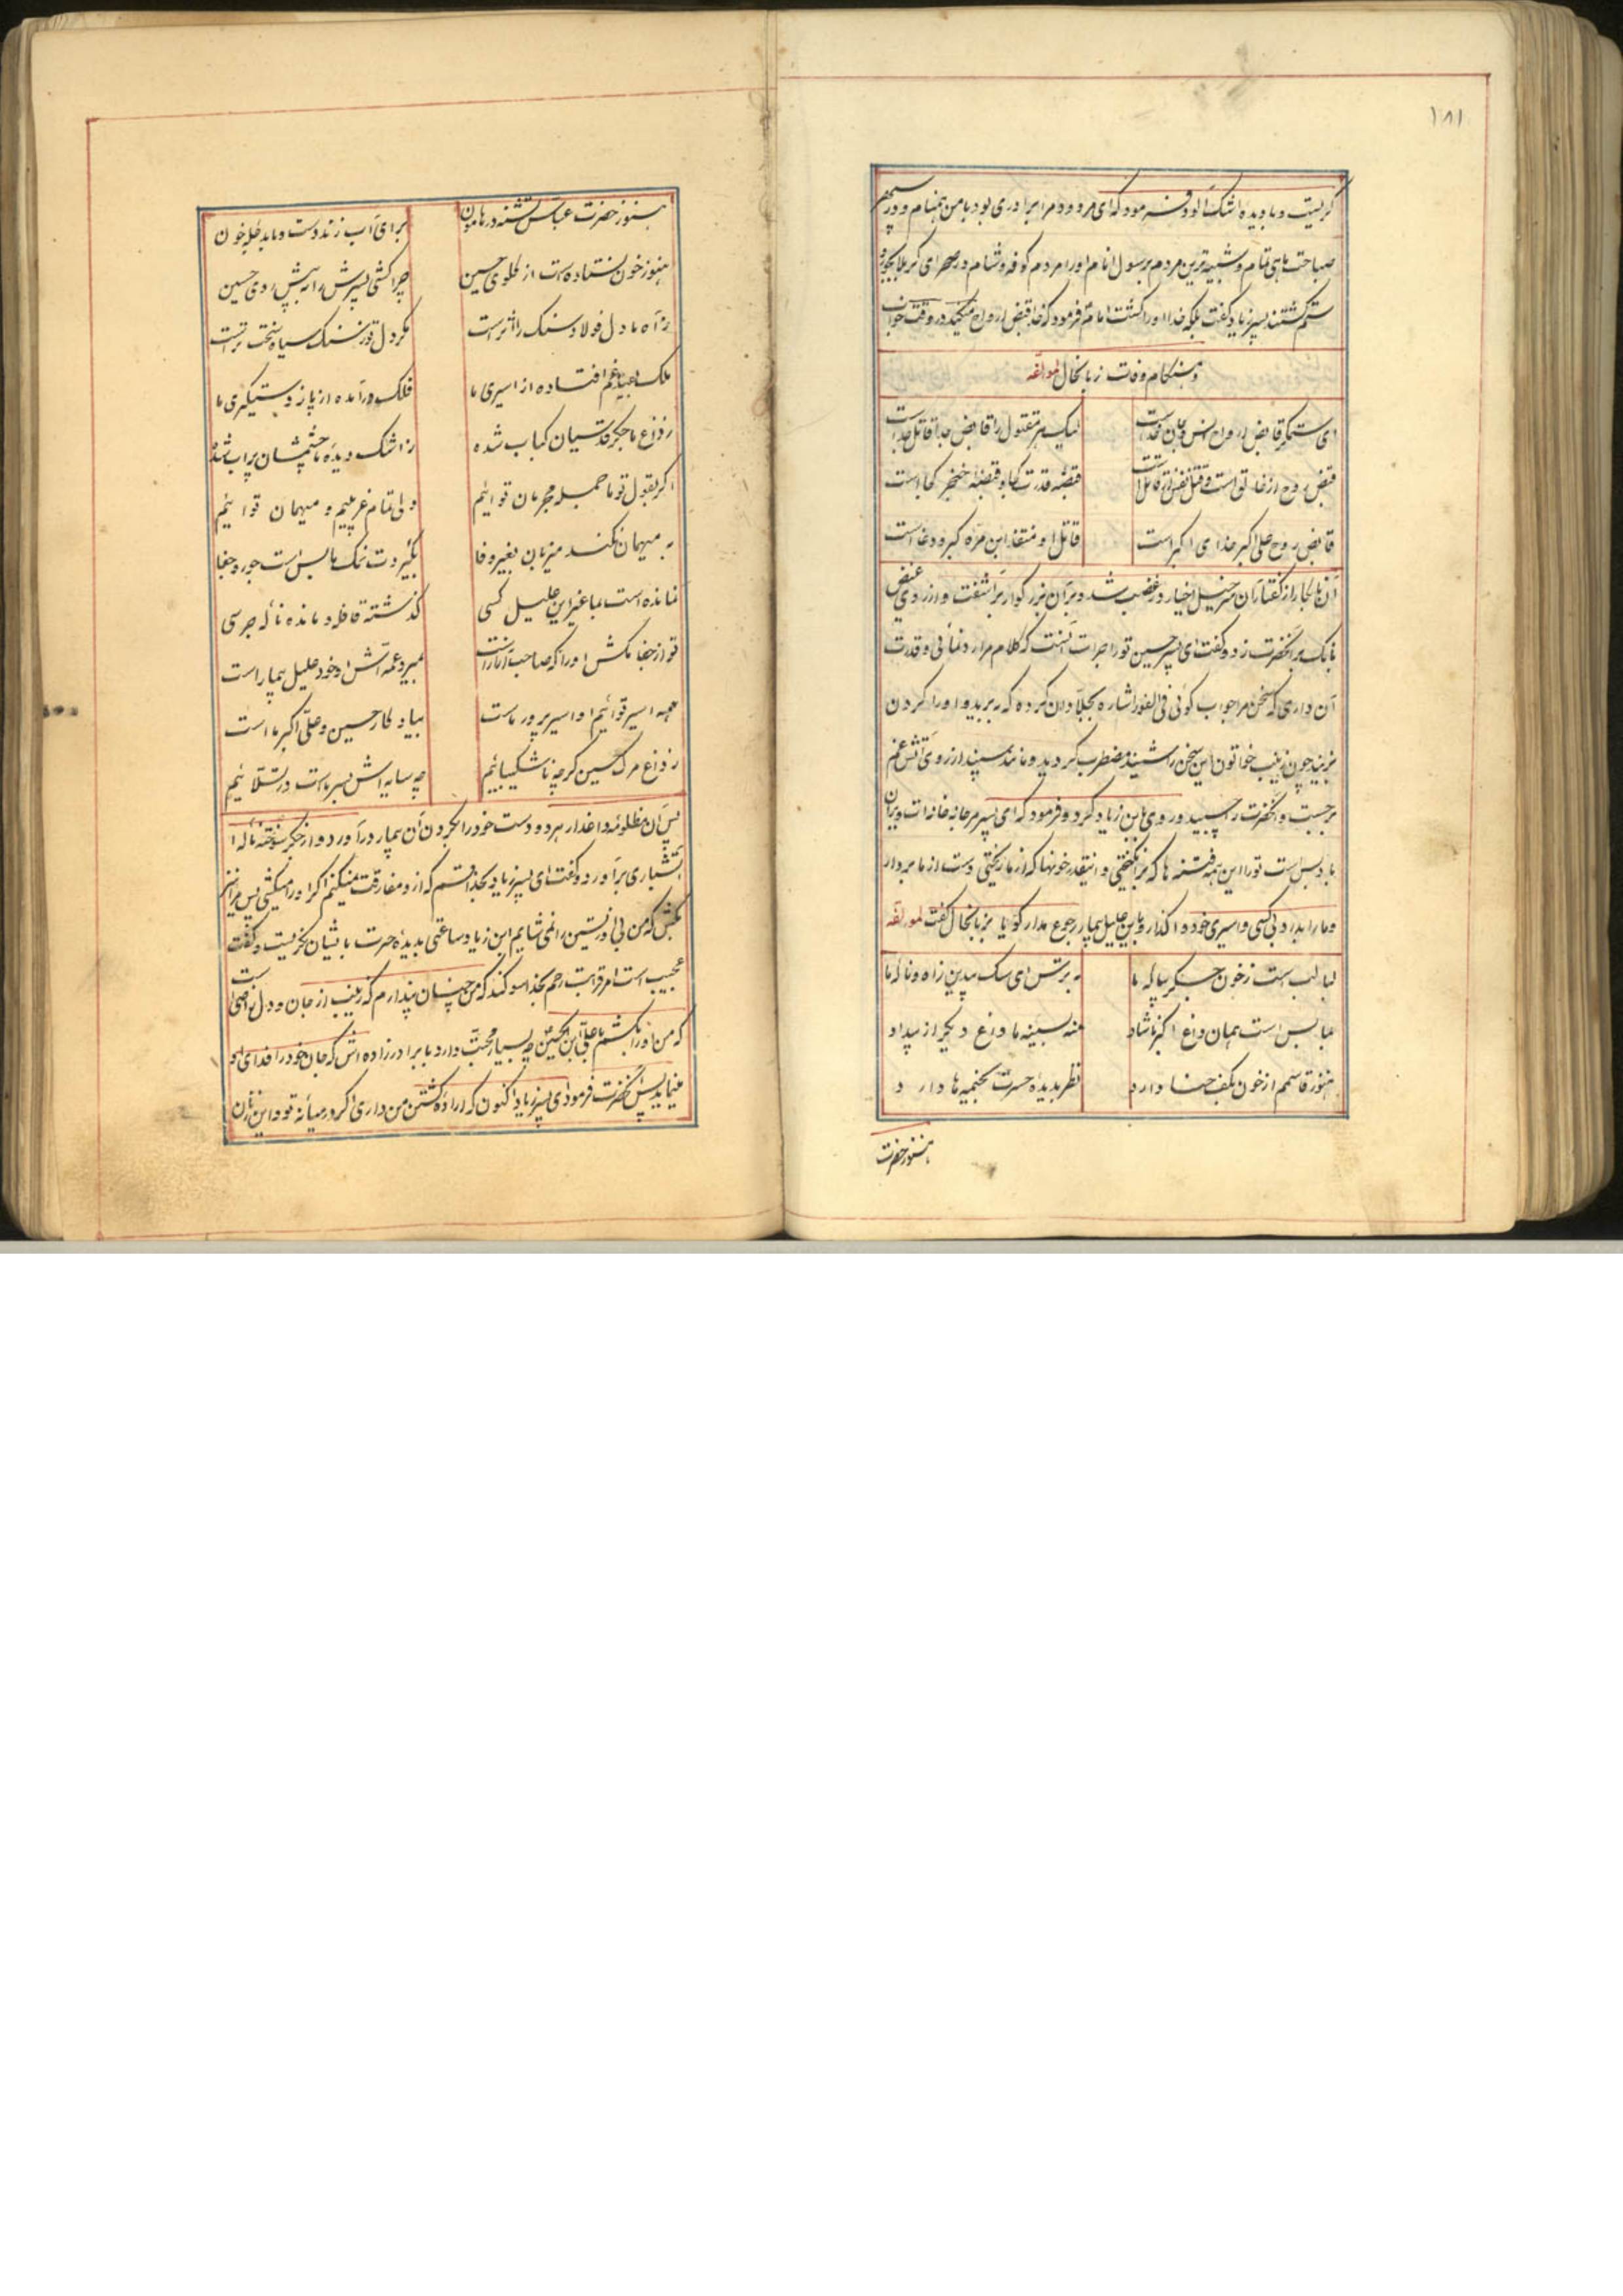 ۱۸۱
کریست و با دیده اشک آلود فرمود که ای مردود مرا برادری بود با من همنام و در
صباحت ماهی تمام و شبیه ترین مردم برسول انام او را مردم کوفه و شام در صحرای کربلا بجور و
ستم کشتند پسر زیاد کفت بلکه خدا او را کشت امام فرمود که خدا قبض ارواح میکند در وقت خواب
و هنکام وفات زبانحال لمولفه
ای ستمکر قابض ارواح انس و جان خداست لیک هر مقتول را قابض جدا قاتل جداست
قبض روح از خالق است و قتل نفس از قاتل است قبضه قدرت کجا و قبضه خنجر کجاست
قابض روح علی اکبر خدای اکبر است قاتل او منقذ ابن مره کبر و دغاست
آن نابکار از کفتار آن سرخیل اخیار در غضب شد و بر آن بزرکوار بر آشفت و از روی غیض
بانک بر آنحضرت زد و کفت ای پسر حسین تو را جرات آنست که کلام مرا رد نمائی و قدرت
آن داری که سخن مرا جواب کوئی فی الفور اشاره بجلادان کرد که ببرید و او را کردن
بزنید چون زینب خواتون این سخن را شنید مضطرب کردید و مانند سپند از روی آتش غم
برجست و آنحضرت را چسبید و روی بابن زیاد کرد و فرمود که ای پسر مرجانه خانه ات ویران
باد بس است تو را این همه فتنه ها که برانکیختی و اینقدر خونها که از ما ریختی دست از ما بردار
و ما را بدرد بی کسی و اسیری خود واکذار و باین علیل بیمار رجوع مدار کویا بزبانحال کفت لمولفه
لبالب است ز خون جکر پیاله ما بترس ای سک بیدین ز آه و ناله ما
بما بس است همان داغ اکبر ناشاد منه بسینه ما داغ دیکر از بیداد
هنوز قاسمم از خون بکف حنا دارد نظر بدیده حسرت بخیمه ها دارد
هنوز حضرت
هنوز حضرت عباس تشنه در هامون برای آب زند دست و پا بدجله خون
هنوز خون نستاده است از کلوی حسین چرا کشی پسرش را به پیش روی حسین
ز آه ما دل فولاد و سنک را اثر است مکر دل تو ز سنک سیاه سخت تر است
ملک بعیده غم افتاده از اسیری ما فلک درآمده از پا ز دستکیری ما
ز داغ ما جکر قدسیان کباب شده ز اشک دیده ما چشمشان پر آب شده
اکر بقول تو ما جمله مجرمان توایم ولی تمام غریبیم و میهمان توایم
به میهمان نکند میزبان بغیر وفا بکیردت نمک ما بس است جور و جفا
نمانده است بما غیر این علیل کسی کذشته قافله و مانده ناله جرسی
تو از جفا مکش او را که صاحب آزار است بمیرد عمه اش او خود علیل بیمار است
همه اسیر توایم او اسیر پرور ماست بیادکار حسین و علی اکبر ماست
ز داغ مرک حسین کرچه ناشکیبائیم چه سایه اش بسر ماست در تسلائیم
پس آن مظلومه داغدار هر دو دست خود را بکردن آن بیمار در آورد و از جکر سوخته ناله
آتشباری بر آورد و کفت ای پسر زیاد بخدا قسم که از و مفارقت نمیکنم اکر او را میکشی پس مرا نیز
بکش که من بی او زیستن را نمی شایم ابن زیاد ساعتی بدیده حیرت باایشان نکریست و کفت
عجیب است امر قرابت رحم بخدا سوکند که من چنان پندارم که زینب از جان و دل راضی است
که من او را بکشم با علی ابن الحسین چه بسیار محبت دارد با برادرزاده اش که جان خود را فدای او
مینماید پس آنحضرت فرمود ای پسر زیاد اکنون که اراده کشتن من داری اکر در میانه تو و این زنان